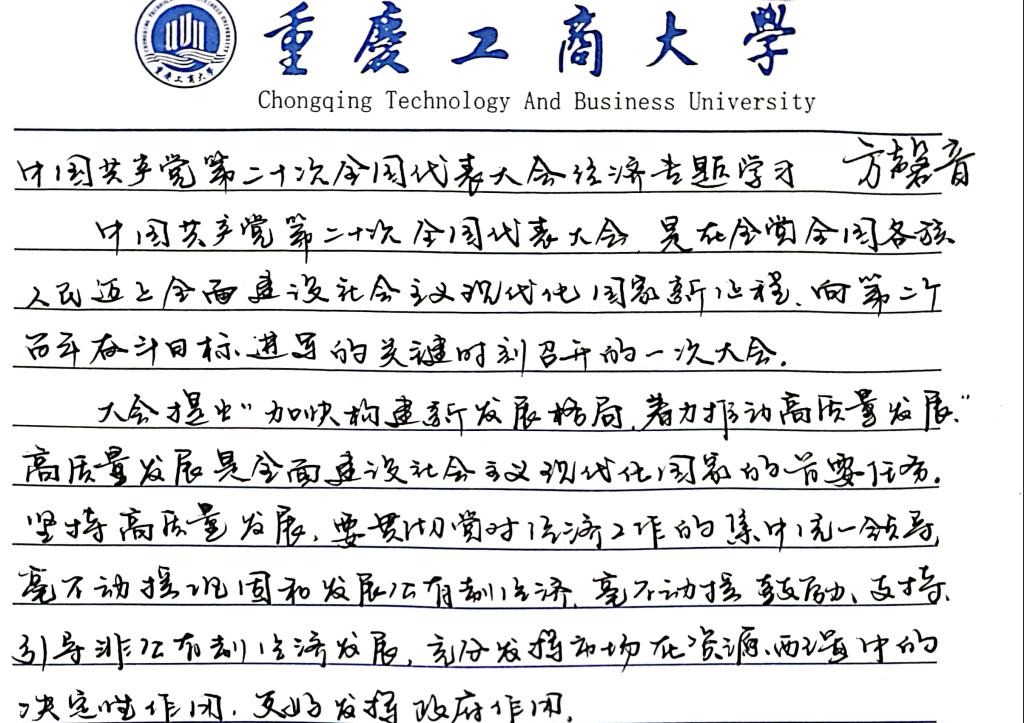 重慶工商大學
Chongqing Technology And Business University
中国共产党第二十次全国代表大会经济专题学习 方馨音
中国共产党第二十次全国代表大会,是在全党全国各族
人民迈上全面建设社会主义现代化国家新征程、向第二个
百年奋斗目标进军的关键时刻召开的一次大会。
大会提出“加快构建新发展格局,着力推动高质量发展。”
高质量发展是全面建设社会主义现代化国家的首要任务。
坚持高质量发展,要贯彻党对经济工作的集中统一领导,
毫不动摇巩固和发展公有制经济,毫不动摇鼓励、支持、
引导非公有制经济发展,充分发挥市场在资源配置中的
决定性作用,更好发挥政府作用。